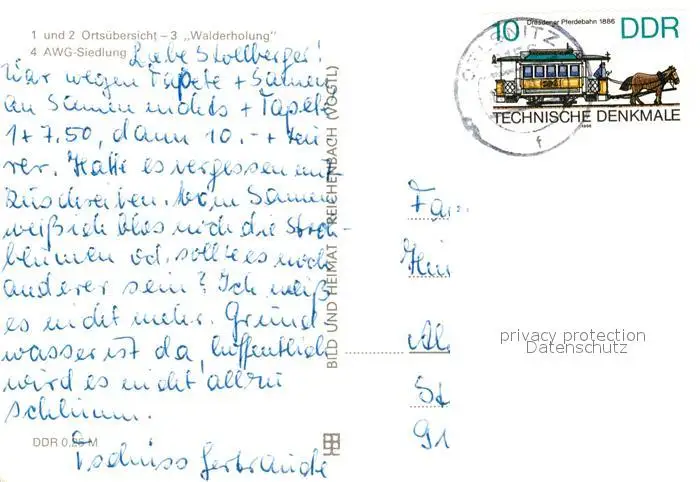 1 und 2 Ortsübersicht – 3 „Walderholung"
4 AWG-Siedlung
Liebe Stollberger!
War wegen Tapete + Samen
an Samen nichts + Tapete
1 + 7.50, dann 10.- + teu
rer. Hatte es vergessen mit
zuschreiben. Vom Samen
weiß ich blos nich die Stroh-
blumen od. sollte es noch
anderer sein? Ich weiß
es nicht mehr. Grund
wasser ist da, hoffentlich
wird es nicht allzu
schlimm.
Tschüss Gertraude
DDR 0,25 M
BILD UND HEIMAT REICHENBACH (VOGTL)
10 Dresdener Pferdebahn 1886 DDR
TECHNISCHE DENKMALE
1986
OELSNITZ
f
Fa
St
privacy protection
Datenschutz